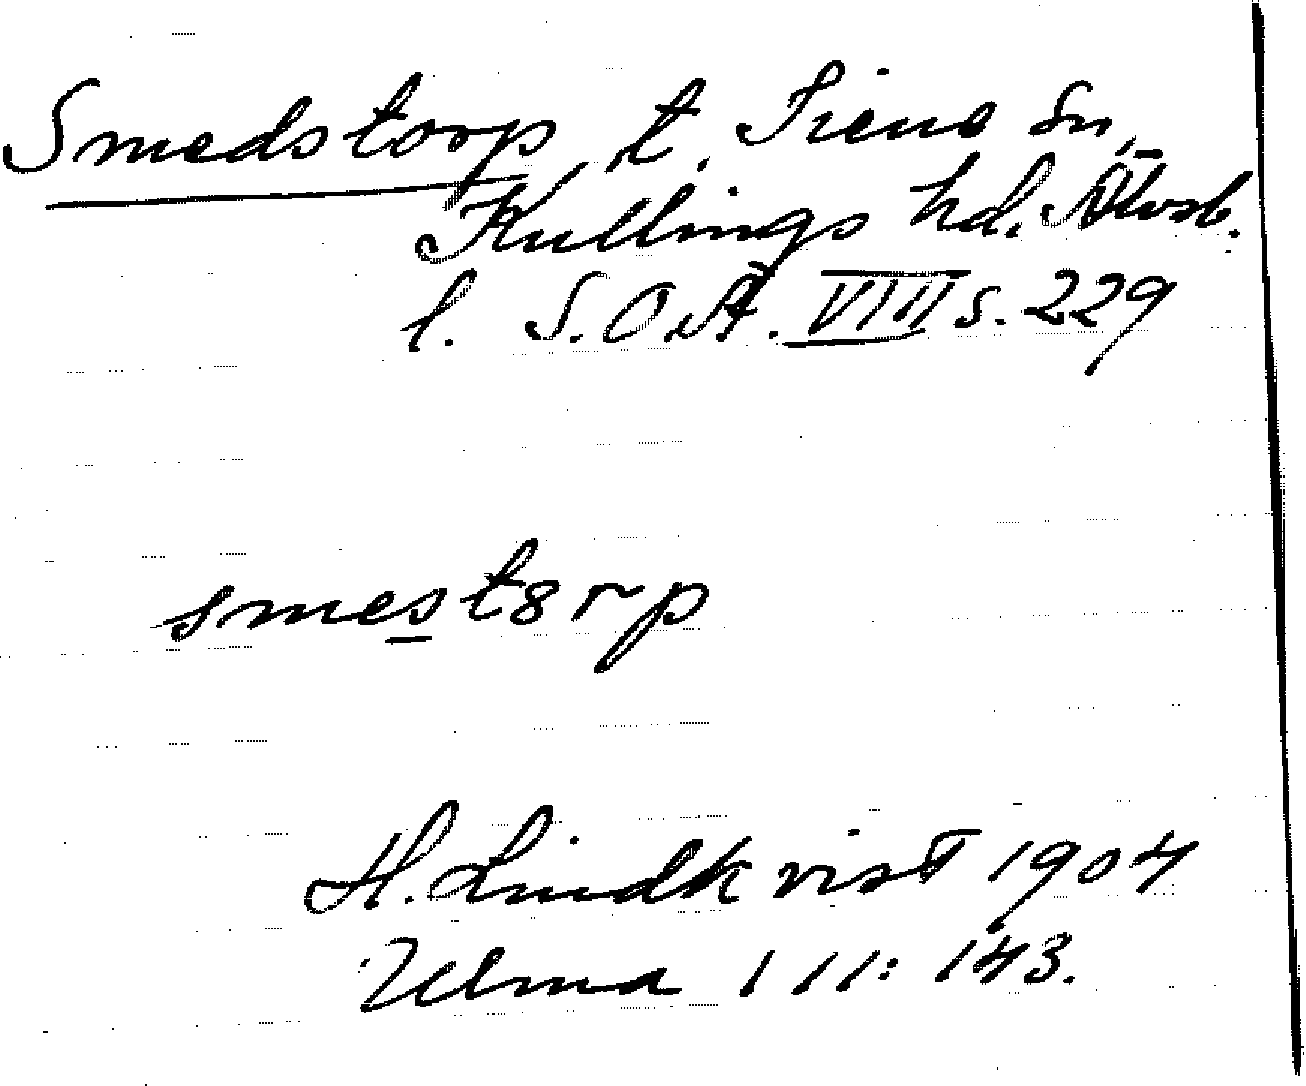 Smedstorp, t. Siene sn,
Kullings hd. Älvsb.
l. S.O.Ä. VIII s. 229
smests8rp
H. Lindkvist 1904
Ulma 111: 143.